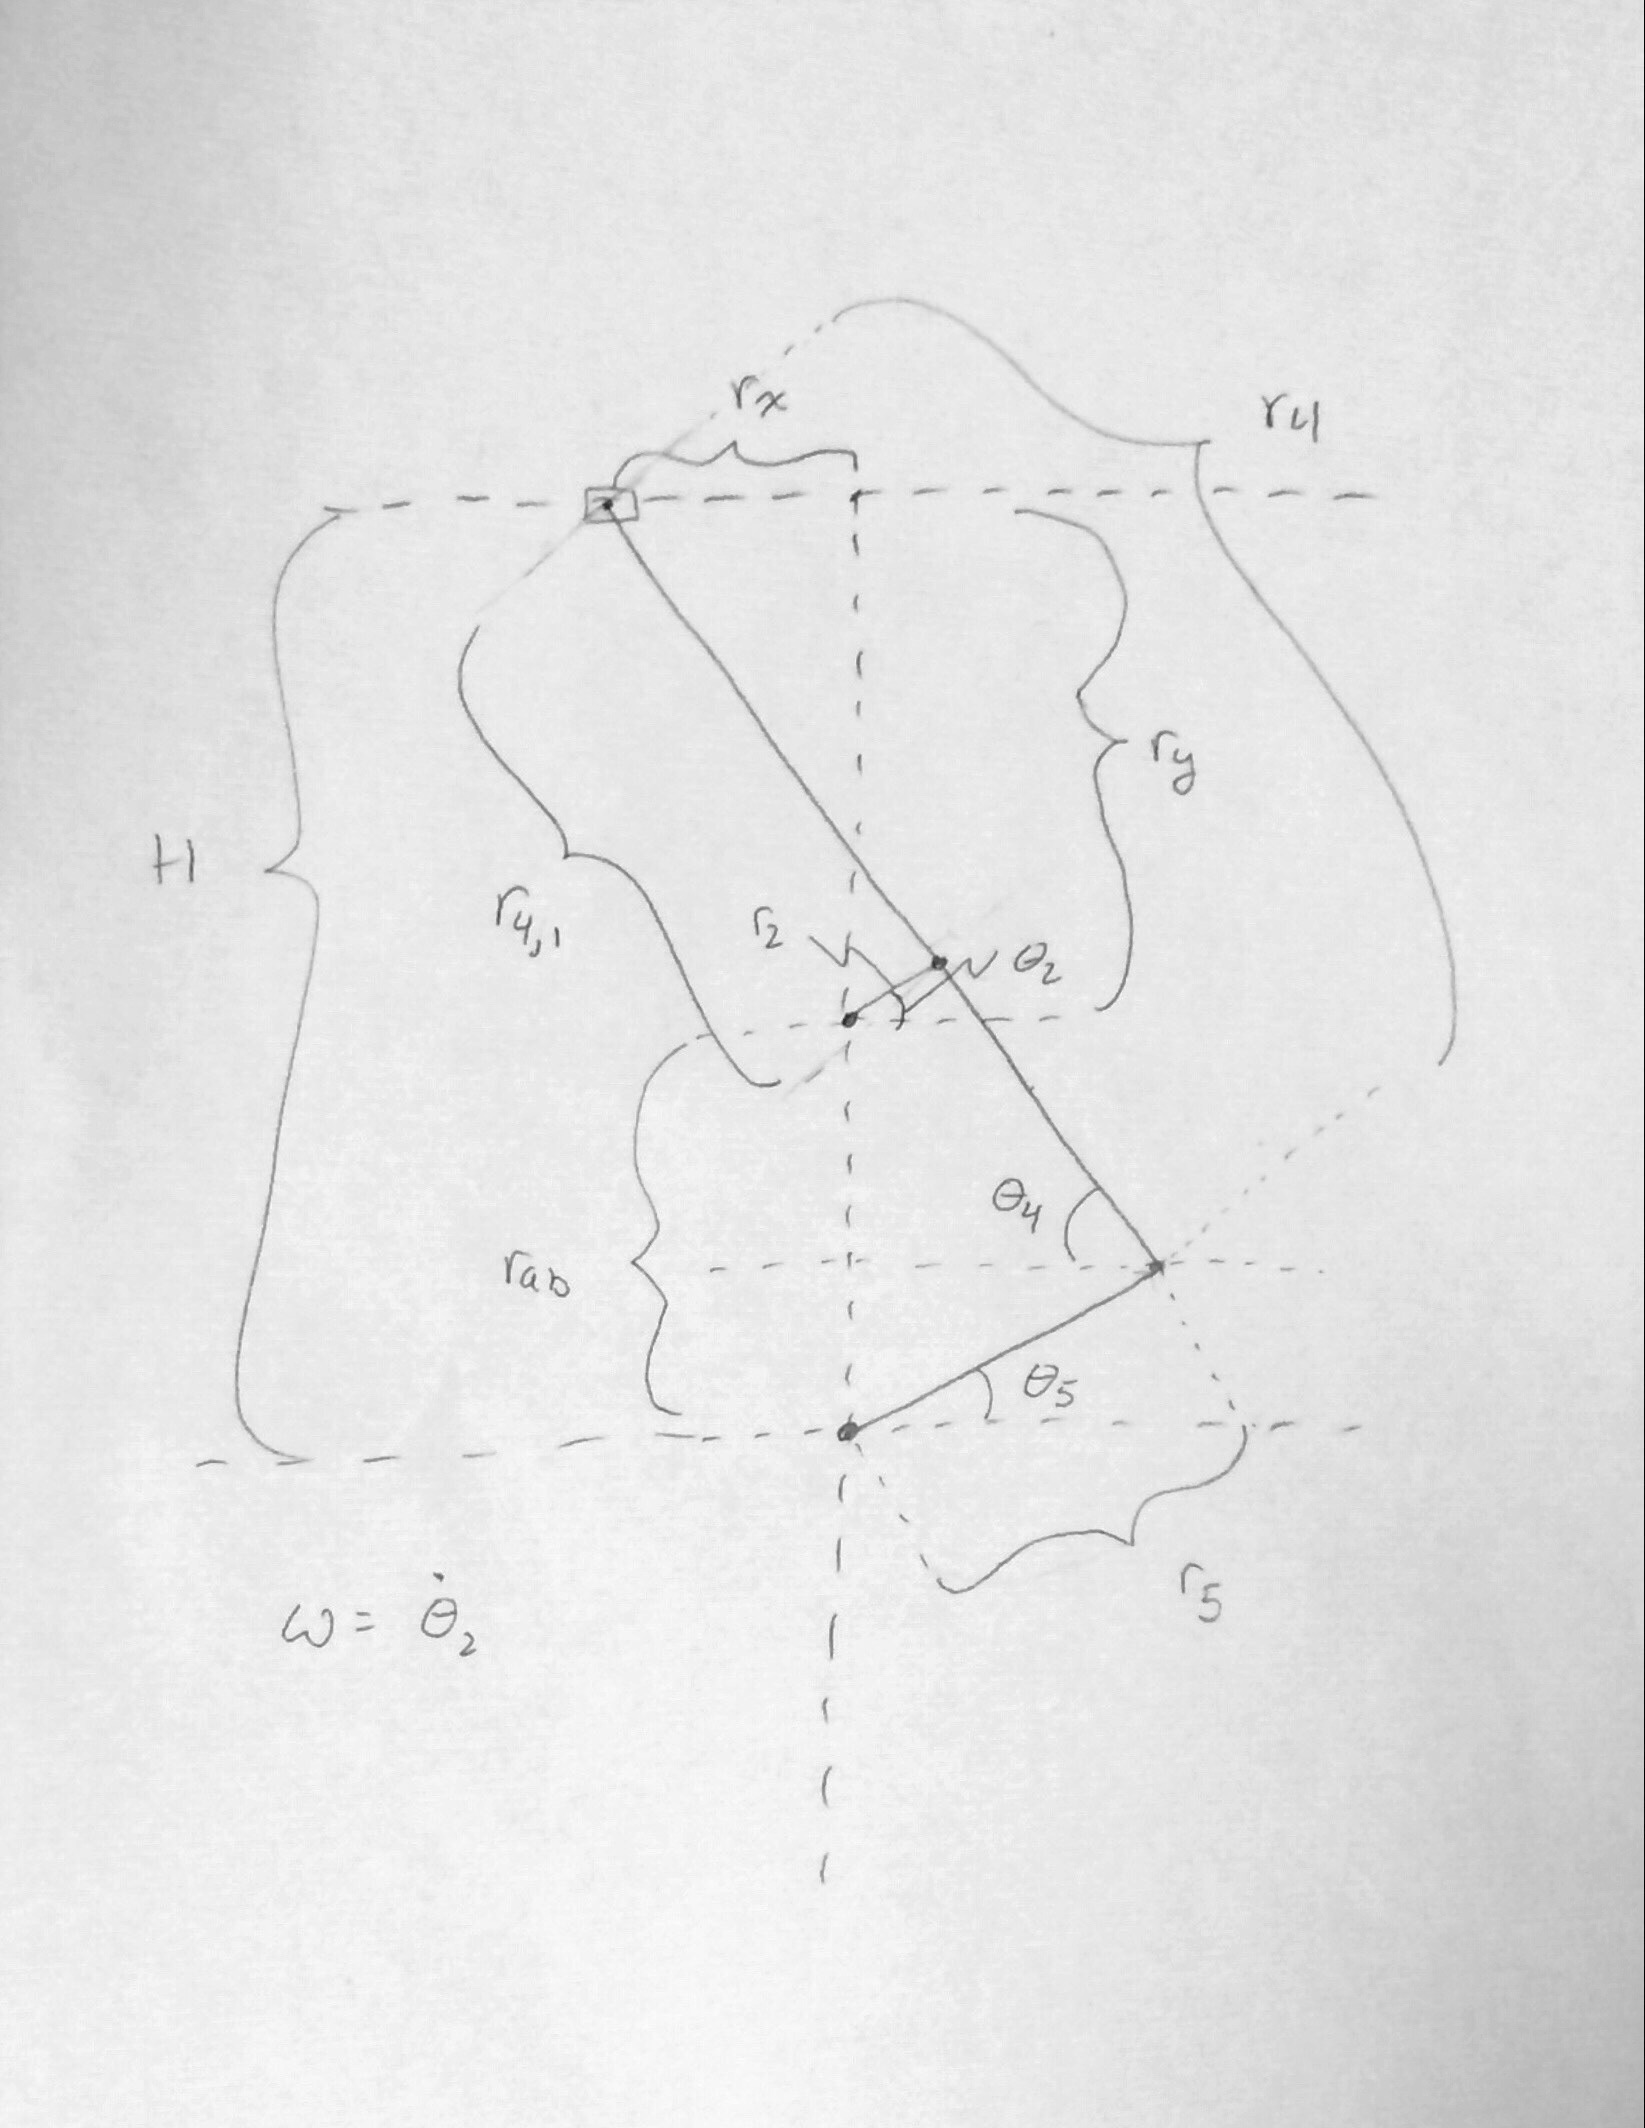 rx
r4
H
ry
r4,1
r2
θ2
θ4
rab
θ5
r5
ω = θ̇2